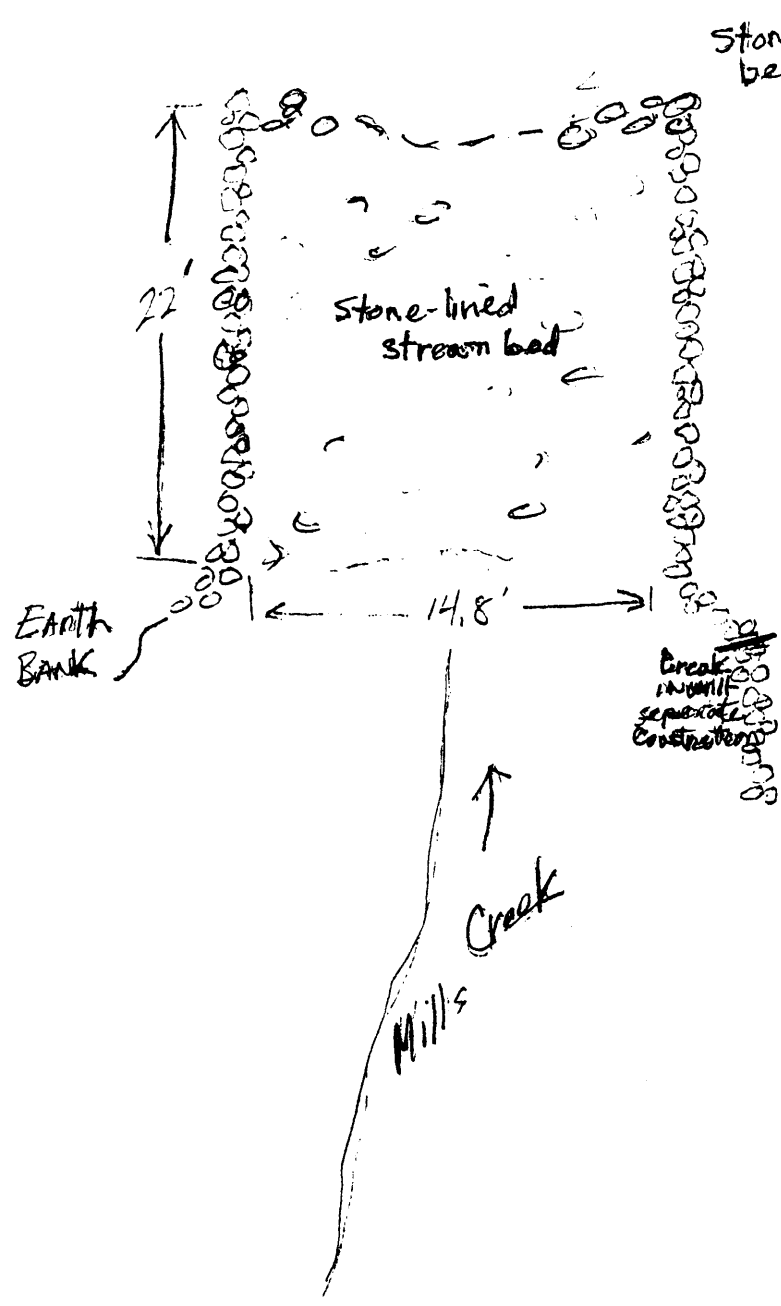 Ston
be
22'
Stone-lined
stream bed
14.8'
EARTH
BANK
Break
in wall
separate
Construction
Mills
Creek